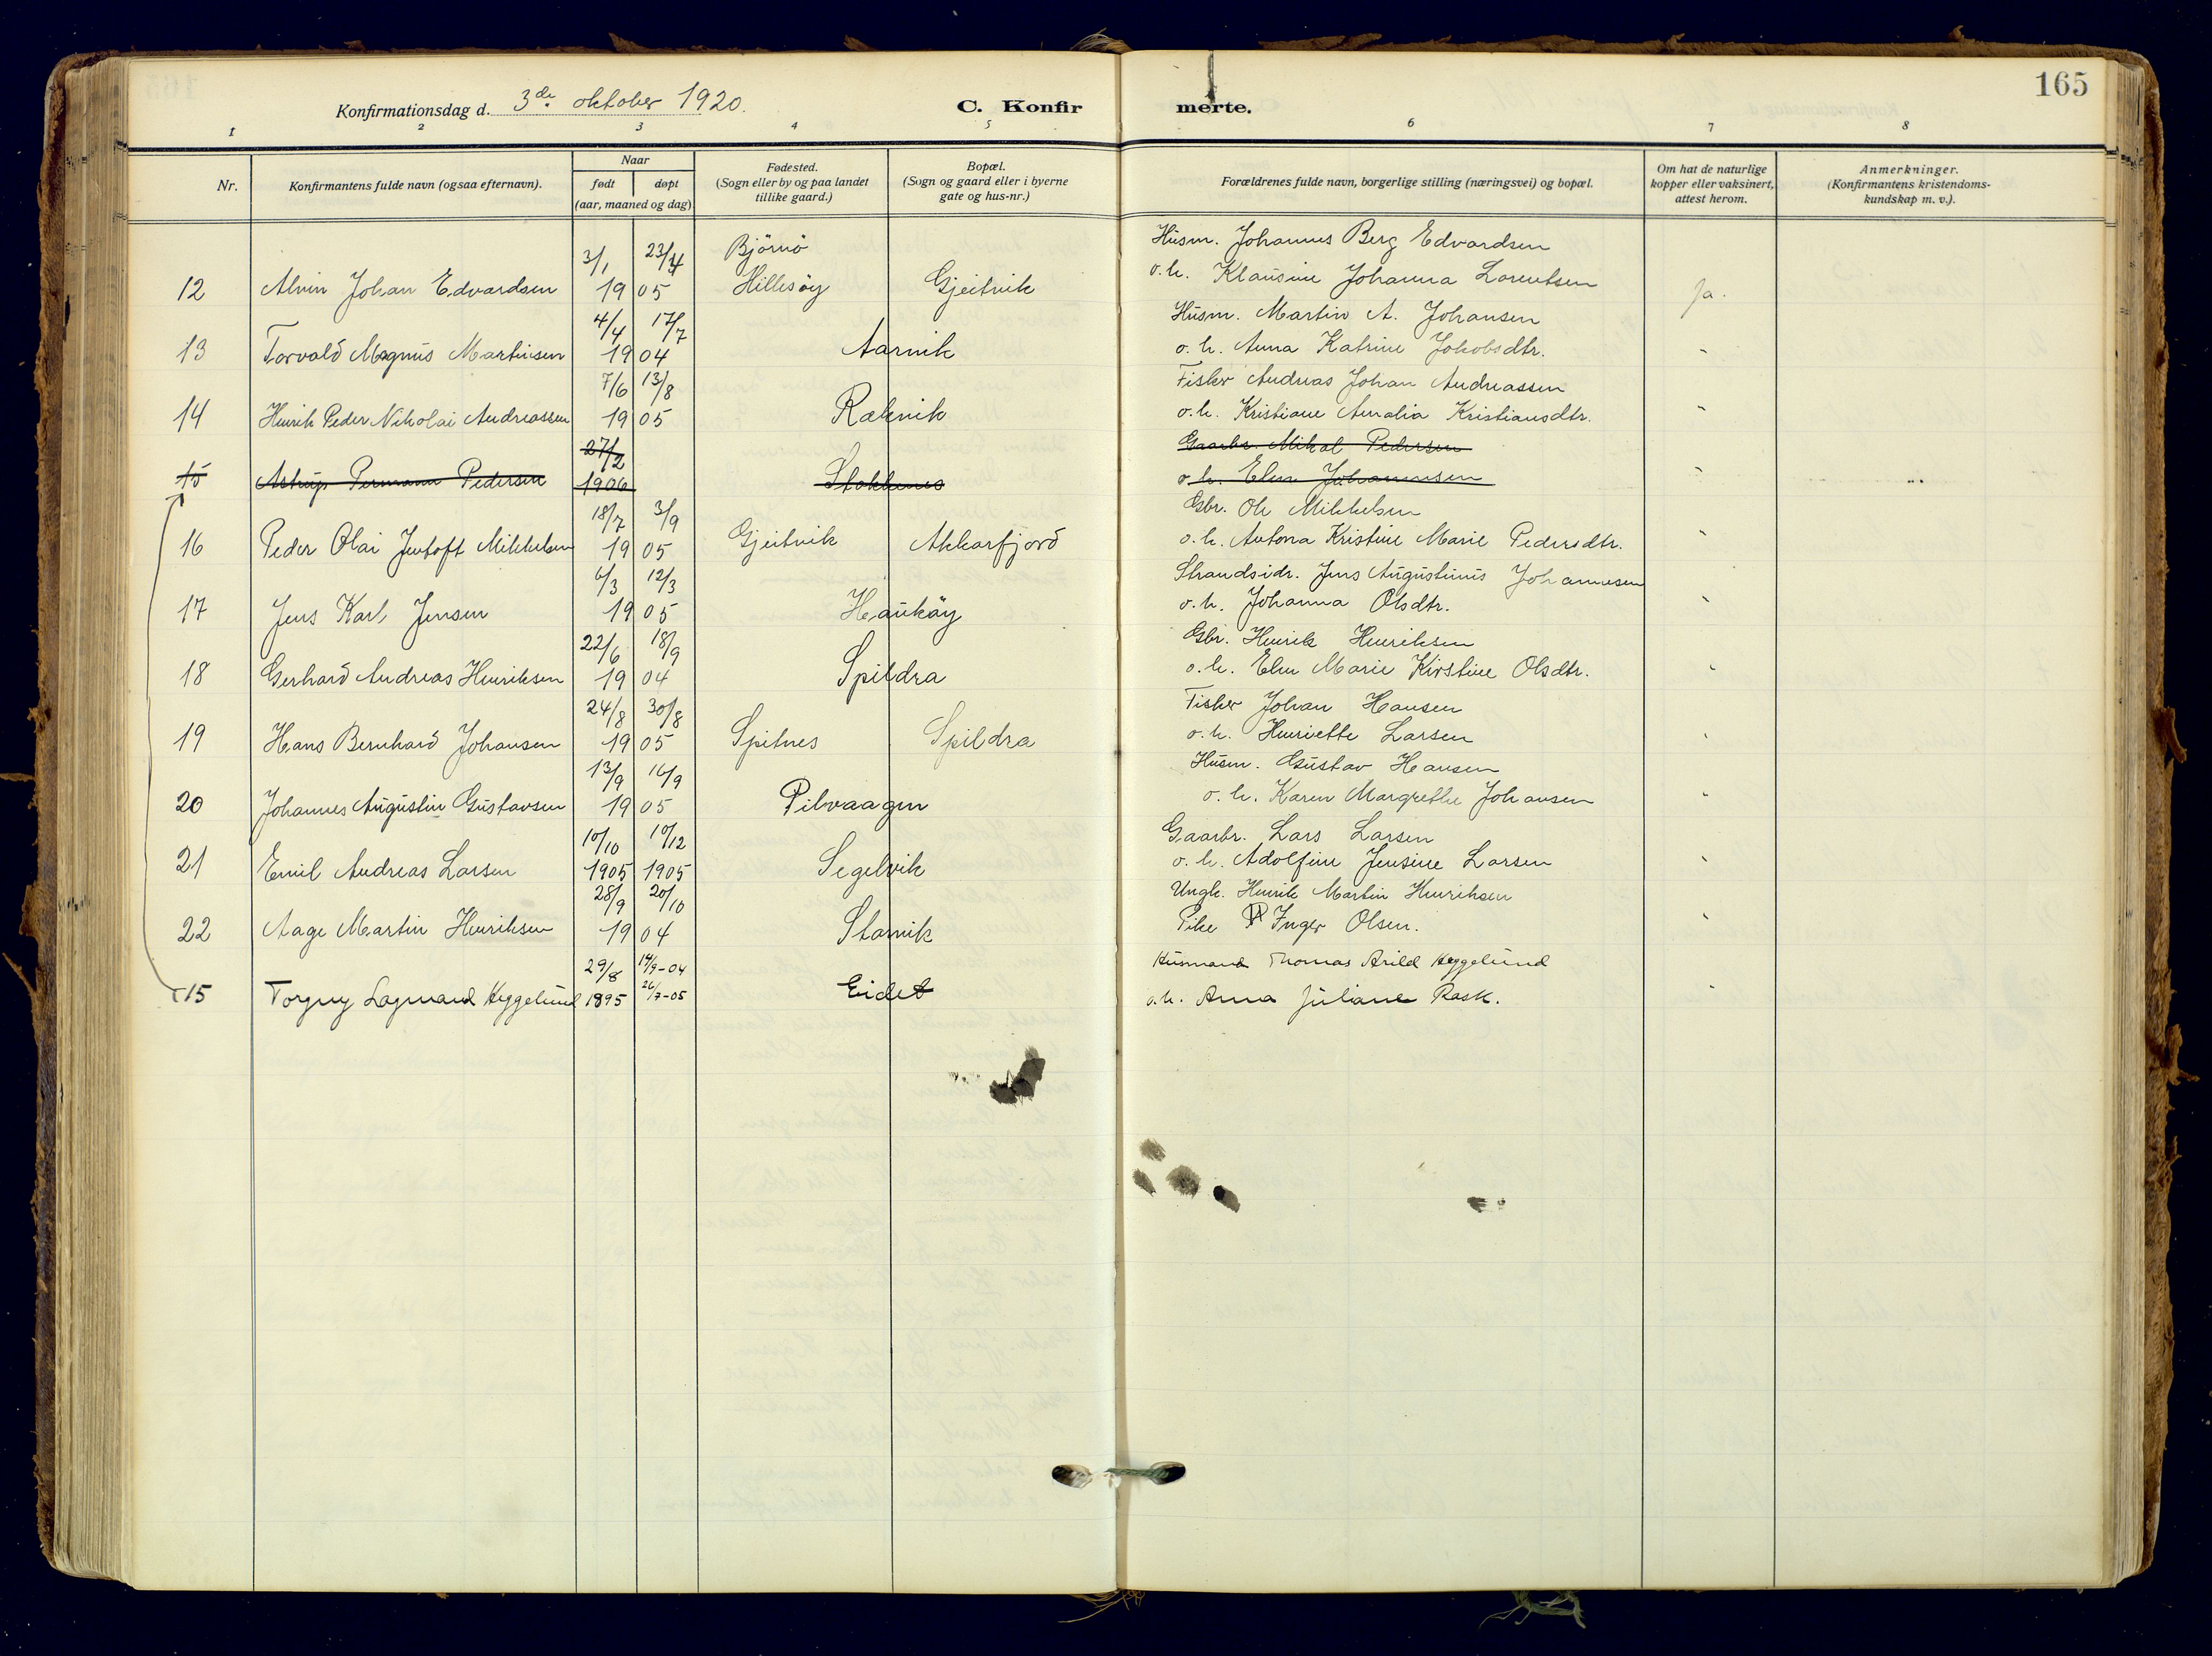 165
Konfirmationsdag d. 3de oktober 1920.
C. Konfir merte.
1 2 3 4 5 6 7 8
Nr.
Konfirmantens fulde navn (ogsaa efternavn).
Naar
født døpt
(aar, maaned og dag)
Fødested.
(Sogn eller by og paa landet
tillike gaard.)
Bopæl.
(Sogn og gaard eller i byerne
gate og hus-nr.)
Forældrenes fulde navn, borgerlige stilling (næringsvei) og bopæl.
Om hat de naturlige
kopper eller vaksinert,
attest herom.
Anmerkninger.
(Konfirmantens kristendoms-
kundskap m. v.).
3/1 23/4 Bjørnö Husm. Johannes Berg Edvardsen
12 Alvin Johan Edvardsen 19 05 Hillesöy Gjeitvik o. h. Klausine Johanna Lorentsen Ja.
4/4 17/7 Husm. Martin A. Johansen
13 Torvald Magnus Martinsen 19 04 Aarvik o. h. Anna Katrine Jakobsdtr. "
7/6 13/8 Fisker Andreas Johan Andreassen
14 Henrik Peder Nikolai Andreassen 19 05 Rakvik o. h. Kristiane Amalia Kristiansdtr. "
27/2 Gaarbr. Mikal Pedersen
15 Astrup Permann Pedersen 1906 Stokkenes o. h. Elen Johannesen "
18/7 3/9 Gbr. Ole Mikkelsen
16 Peder Olai Jentoft Mikkelsen 19 05 Gjeitvik Akkarfjord o. h. Antona Kristine Marie Pedersdtr. "
6/3 12/3 Strandsidr. Jens Augustinus Johannesen
17 Jens Karl Jensen 19 05 Haukøy o. h. Johanna Olsdtr. "
22/6 18/9 Gbr. Henrik Henriksen
18 Gerhard Andreas Henriksen 19 04 Spildra o. h. Elen Marie Kirstine Olsdtr. "
24/8 30/8 Fisker Johan Hansen
19 Hans Bernhard Johansen 19 05 Spilnes Spildra o. h. Henriette Larsen "
13/9 16/9 Husm. Gustav Hansen
20 Johannes Augustin Gustavsen 19 05 Pilvaagen o. h. Karen Margrethe Johansen "
10/10 10/12 Gaarbr. Lars Larsen
21 Emil Andreas Larsen 1905 1905 Segelvik o. h. Adolfine Jensine Larsen "
28/9 20/10 Ungk. Henrik Martin Henriksen
22 Aage Martin Henriksen 19 04 Starvik Pike Inger Olsen. "
29/8 14/9-04 Husmand Thomas Arild Heggelund
15 Torgny Lagmand Heggelund 1895 26/7-05 Eidet o. h. Anna Juliane Rask. "